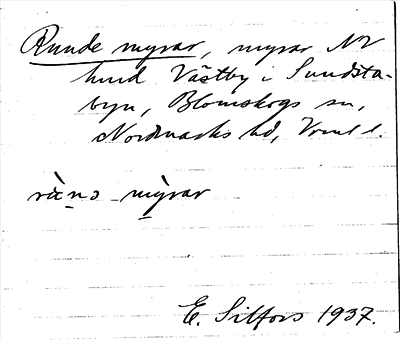 Runde myrar, myrar NV
hmd Västby i Sundsta-
byn, Blomskogs sn,
Nordmarks hd, Vrml l.
myrar
E. Silfors 1937.